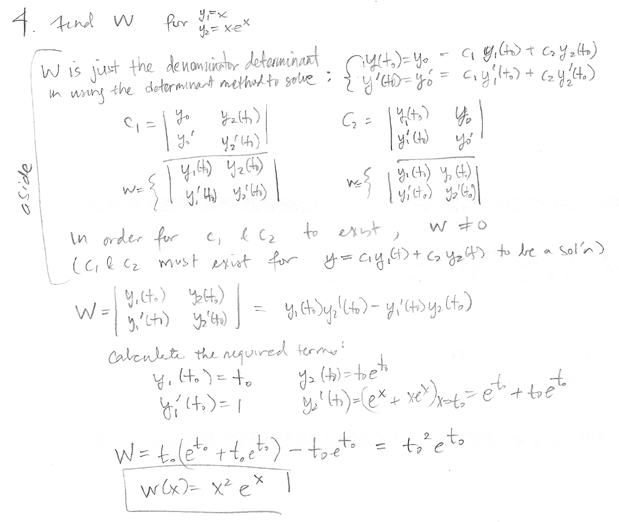 4. Find W for y₁=x
y₂=xeˣ
aside
W is just the denominator determinant
in using the determinant method to solve :
{ y(t₀)=y₀ = c₁ y₁(t₀) + c₂ y₂(t₀)
y'(t₀)=y₀' = c₁y₁'(t₀) + c₂y₂'(t₀)
c₁ = | y₀ y₂(t₀) |
| y₀' y₂'(t₀) |
W= { | y₁(t₀) y₂(t₀) |
| y₁'(t₀) y₂'(t₀) |
c₂ = | y₁(t₀) y₀ |
| y₁'(t₀) y₀' |
W= { | y₁(t₀) y₂(t₀) |
| y₁'(t₀) y₂'(t₀) |
In order for c₁ & c₂ to exist, W ≠ 0
(c₁ & c₂ must exist for y = c₁y₁(t) + c₂y₂(t) to be a sol'n)
W = | y₁(t₀) y₂(t₀) | = y₁(t₀)y₂'(t₀) - y₁'(t₀)y₂(t₀)
| y₁'(t₀) y₂'(t₀) |
Calculate the required terms:
y₁(t₀) = t₀ y₂(t₀) = t₀e^t₀
y₁'(t₀) = 1 y₂'(t₀) = (eˣ + xeˣ)x=t₀ = e^t₀ + t₀e^t₀
W = t₀(e^t₀ + t₀e^t₀) - t₀e^t₀ = t₀²e^t₀
W(x) = x² eˣ